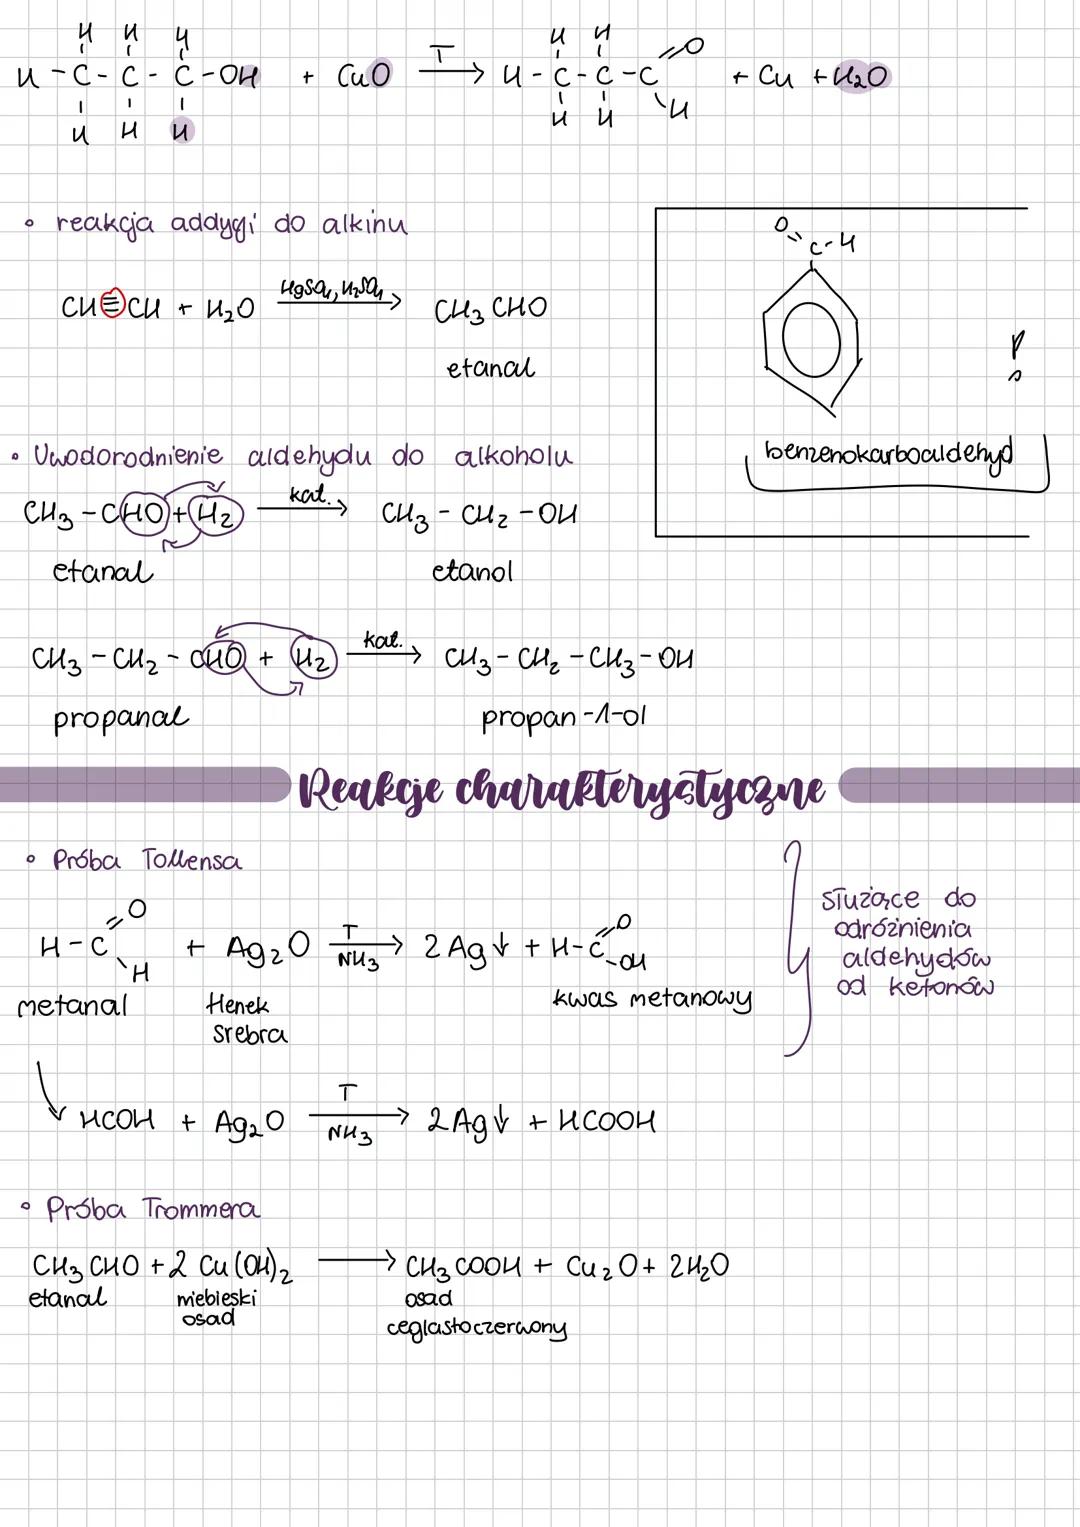 H H H
H-C-C-C-OH + CuO T→ H-C-C-C=O + Cu + H₂O
H H H H H H
• reakcja addycji do alkinu
CH≡CH + H₂O HgSO₄, H₂SO₄→ CH₃CHO
etanal
O=C-H
benzenokarboaldehyd
!
• Uwodorodnienie aldehydu do alkoholu
CH₃-CHO + H₂ kat.→ CH₃-CH₂-OH
etanal etanol
CH₃-CH₂-CHO + H₂ kat.→ CH₃-CH₂-CH₃-OH
propanal propan-1-ol
Reakcje charakterystyczne
• Próba Tollensa
H-C=O H + Ag₂O T NH₃→ 2Ag↓ + H-C=O -OH
metanal tlenek srebra kwas metanowy
służące do
odróżnienia
aldehydów
od ketonów
HCOH + Ag₂O T NH₃→ 2Ag↓ + HCOOH
• Próba Trommera
CH₃CHO + 2Cu(OH)₂ → CH₃COOH + Cu₂O + 2H₂O
etanal niebieski osad
osad
ceglastoczerwony